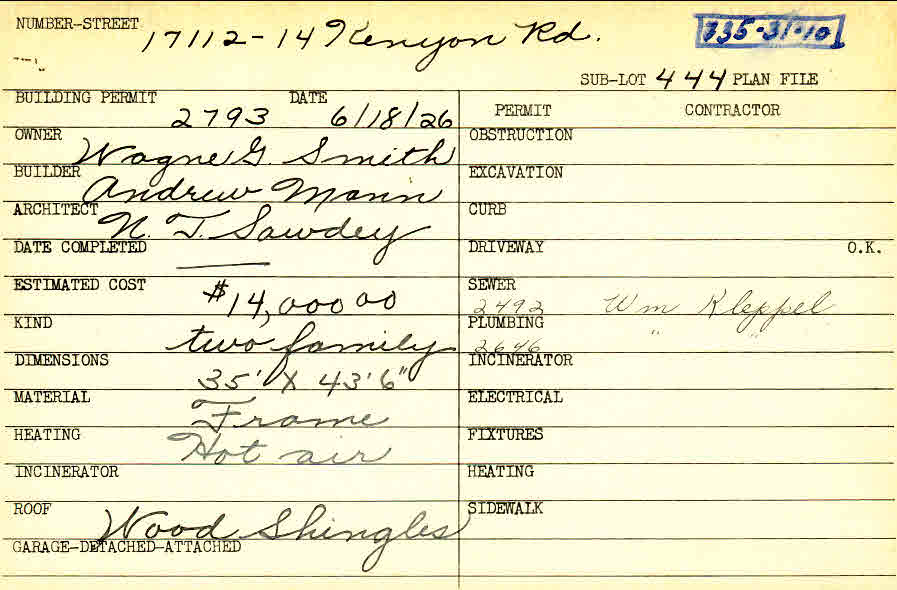 NUMBER-STREET 17112-14 Kenyon Rd. 735-31-10
SUB-LOT 444 PLAN FILE
BUILDING PERMIT 2793 DATE 6/18/26
OWNER Wagne G. Smith
BUILDER Andrew Mann
ARCHITECT N. T. Sawdey
DATE COMPLETED ——
ESTIMATED COST $14,000 00
KIND two family
DIMENSIONS 35' X 43'6"
MATERIAL Frame
HEATING Hot air
INCINERATOR
ROOF Wood Shingles
GARAGE-DETACHED-ATTACHED
PERMIT CONTRACTOR
OBSTRUCTION
EXCAVATION
CURB
DRIVEWAY O.K.
SEWER 2492 Wm Kleppel
PLUMBING 2646 " "
INCINERATOR
ELECTRICAL
FIXTURES
HEATING
SIDEWALK